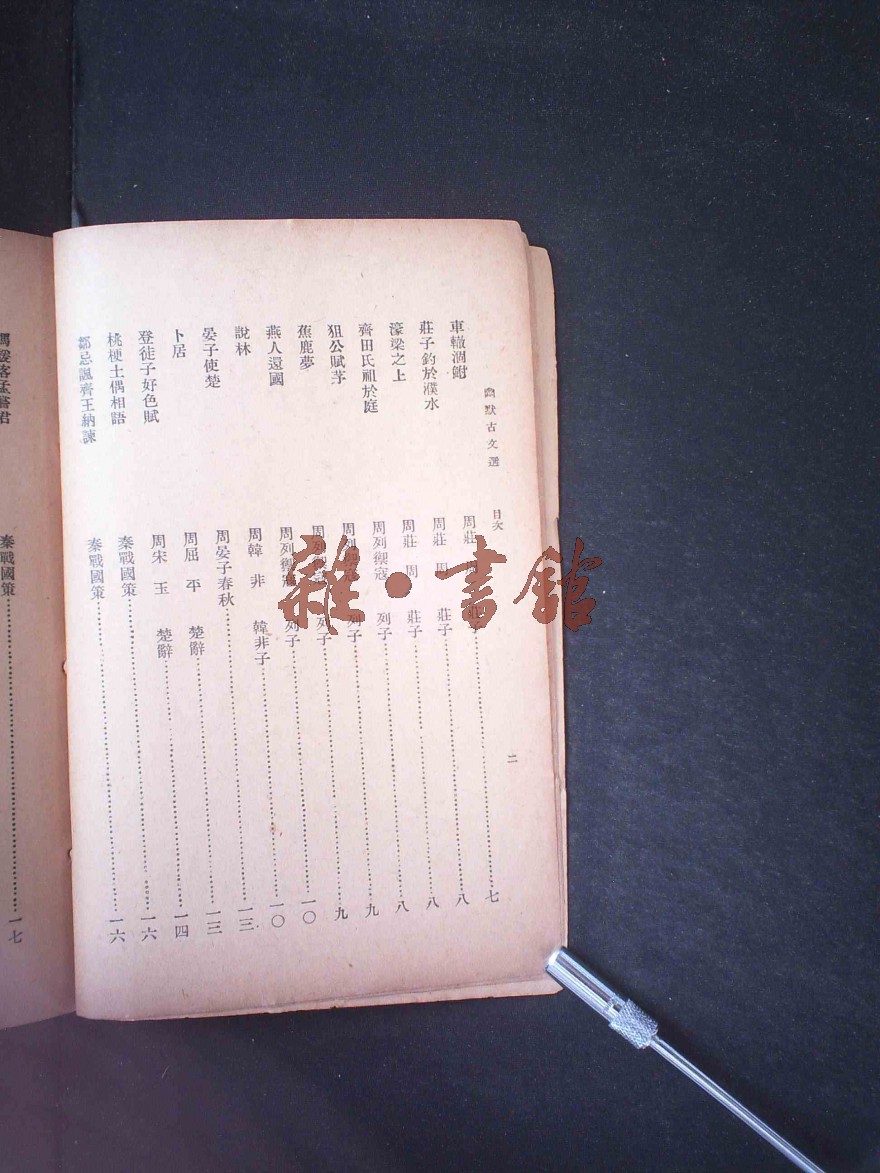 幽默古文選 目次 二
車轍涸鮒 周莊 周 莊子 七
莊子釣於濮水 周莊 周 莊子 八
濠梁之上 周莊 周 莊子 八
齊田氏祖於庭 周列禦寇 列子 八
狙公賦芧 周列禦寇 列子 九
蕉鹿夢 周列禦寇 列子 九
燕人還國 周列禦寇 列子 一〇
說林 周韓 非 韓非子 一〇
晏子使楚 周晏子春秋 一三
卜居 周屈 平 楚辭 一三
登徒子好色賦 周宋 玉 楚辭 一四
桃梗土偶相語 秦戰國策 一六
鄒忌諷齊王納諫 秦戰國策 一六
馮諼客孟嘗君 秦戰國策 一七
雜·書館